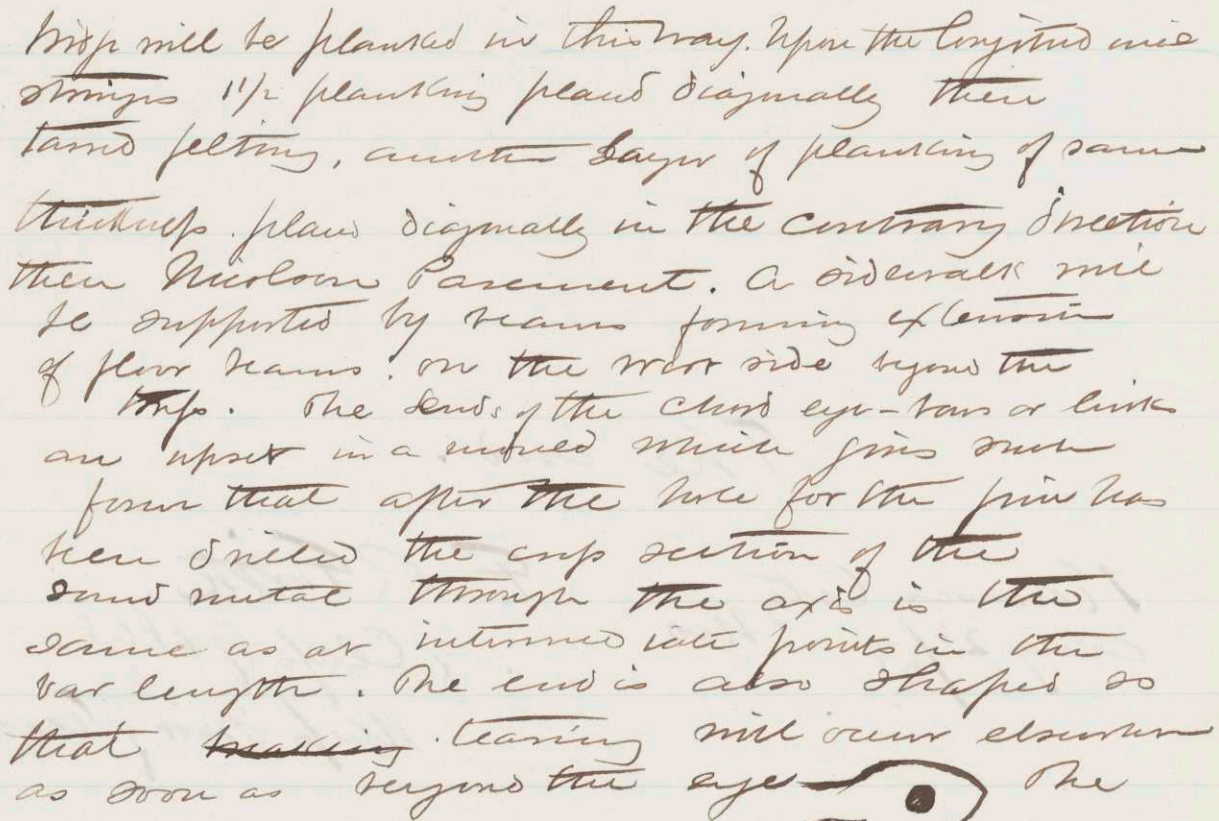 Bridge will be planked in this way. Upon the longitudinal
stringers 1 1/2 planking placed diagonally then
tarred felting, another layer of planking of same
thickness placed diagonally in the contrary direction
then Nicolson Pavement. A sidewalk will
be supported by beams forming extension
of floor beams on the west side beyond the
truss. The ends of the chord eye-bars or links
are upset in a mould which gives such
form that after the hole for the pin has
been drilled the cross section of the
sound metal through the axis is the
same as at intermediate points in the
bar length. The end is also shaped so
that breaking tearing will occur elsewhere
as soon as beyond the eye The